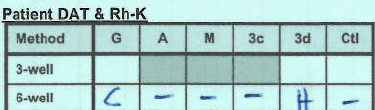 Patient DAT & Rh-K
Method G A M 3c 3d Ctl
3-well
6-well C - - - H -